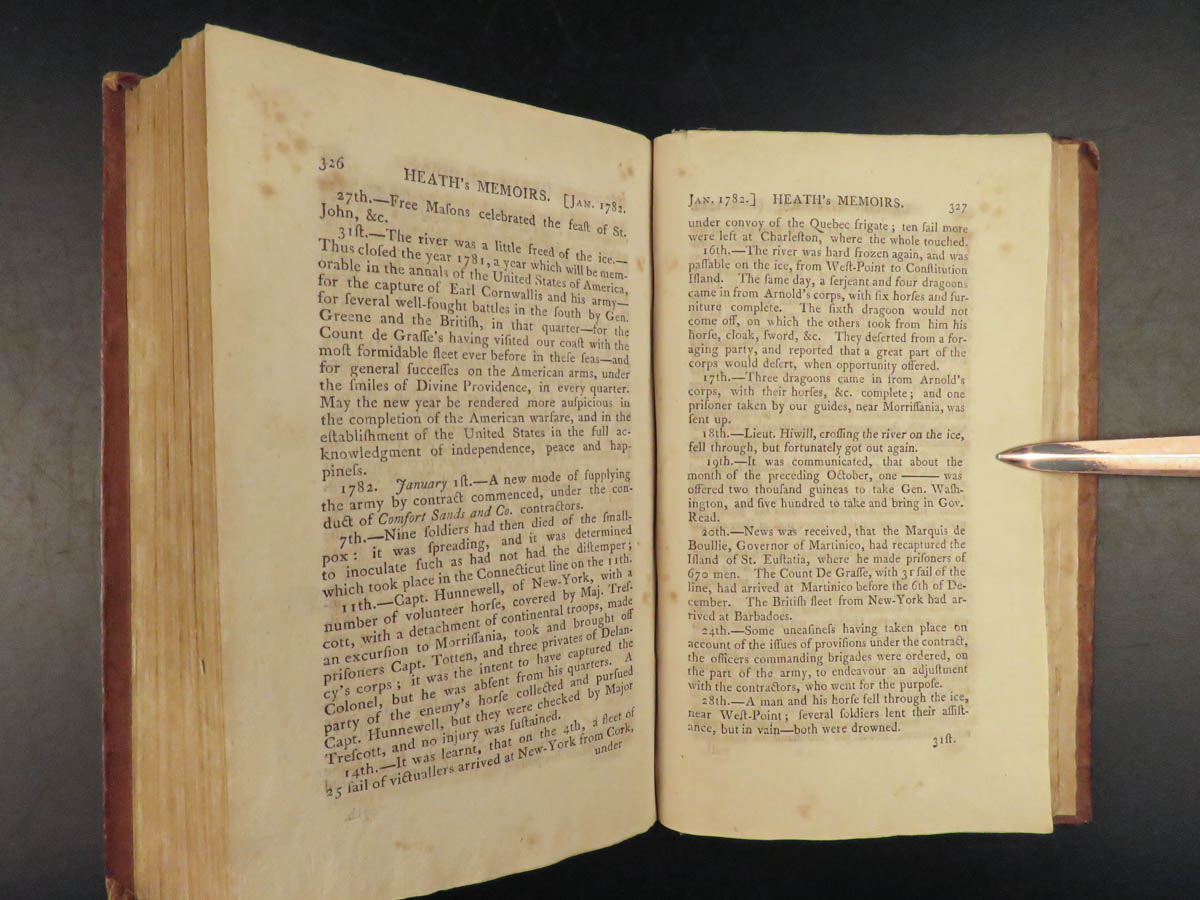 326
HEATH's MEMOIRS. [JAN. 1782.
27th.—Free Maſons celebrated the feaſt of St.
John, &c.
31ſt.—The river was a little freed of the ice.—
Thus cloſed the year 1781, a year which will be mem-
orable in the annals of the United States of America,
for the capture of Earl Cornwallis and his army—
for ſeveral well-fought battles in the ſouth by Gen.
Greene and the Britiſh, in that quarter—for the
Count de Graſſe's having viſited our coaſt with the
moſt formidable fleet ever before in theſe ſeas—and
for general ſucceſſes on the American arms, under
the ſmiles of Divine Providence, in every quarter.
May the new year be rendered more auſpicious in
the completion of the American warfare, and in the
eſtabliſhment of the United States in the full ac-
knowledgment of independence, peace and hap-
pineſs.
1782. January 1ſt.—A new mode of ſupplying
the army by contract commenced, under the con-
duct of Comfort Sands and Co. contractors.
7th.—Nine ſoldiers had then died of the ſmall-
pox: it was ſpreading, and it was determined
to inoculate ſuch as had not had the diſtemper;
which took place in the Connecticut line on the 11th.
11th.—Capt. Hunnewell, of New-York, with a
number of volunteer horſe, covered by Maj. Treſ-
cott, with a detachment of continental troops, made
an excurſion to Morriſſania, took and brought off
priſoners Capt. Totten, and three privates of Delan-
cy's corps; it was the intent to have captured the
Colonel, but he was abſent from his quarters. A
party of the enemy's horſe collected and purſued
Capt. Hunnewell, but they were checked by Major
Treſcott, and no injury was ſuſtained.
14th.—It was learnt, that on the 4th, a fleet of
25 ſail of victuallers arrived at New-York from Cork,
under
JAN. 1782.] HEATH's MEMOIRS. 327
under convoy of the Quebec frigate; ten ſail more
were left at Charleſton, where the whole touched.
16th.—The river was hard frozen again, and was
paſſable on the ice, from Weſt-Point to Conſtitution
Iſland. The ſame day, a ſerjeant and four dragoons
came in from Arnold's corps, with ſix horſes and fur-
niture complete. The ſixth dragoon would not
come off, on which the others took from him his
horſe, cloak, ſword, &c. They deſerted from a for-
aging party, and reported that a great part of the
corps would deſert, when opportunity offered.
17th.—Three dragoons came in from Arnold's
corps, with their horſes, &c. complete; and one
priſoner taken by our guides, near Morriſſania, was
ſent up.
18th.—Lieut. Hiwill, croſſing the river on the ice,
fell through, but fortunately got out again.
19th.—It was communicated, that about the
month of the preceding October, one ——— was
offered two thouſand guineas to take Gen. Waſh-
ington, and five hundred to take and bring in Gov.
Read.
20th.—News was received, that the Marquis de
Boullie, Governor of Martinico, had recaptured the
Iſland of St. Euſtatia, where he made priſoners of
670 men. The Count De Graſſe, with 31 ſail of the
line, had arrived at Martinico before the 6th of De-
cember. The Britiſh fleet from New-York had ar-
rived at Barbadoes.
24th.—Some uneaſineſs having taken place on
account of the iſſues of proviſions under the contract,
the officers commanding brigades were ordered, on
the part of the army, to endeavour an adjuſtment
with the contractors, who went for the purpoſe.
28th.—A man and his horſe fell through the ice,
near Weſt-Point; ſeveral ſoldiers lent their aſſiſt-
ance, but in vain—both were drowned.
31ſt.